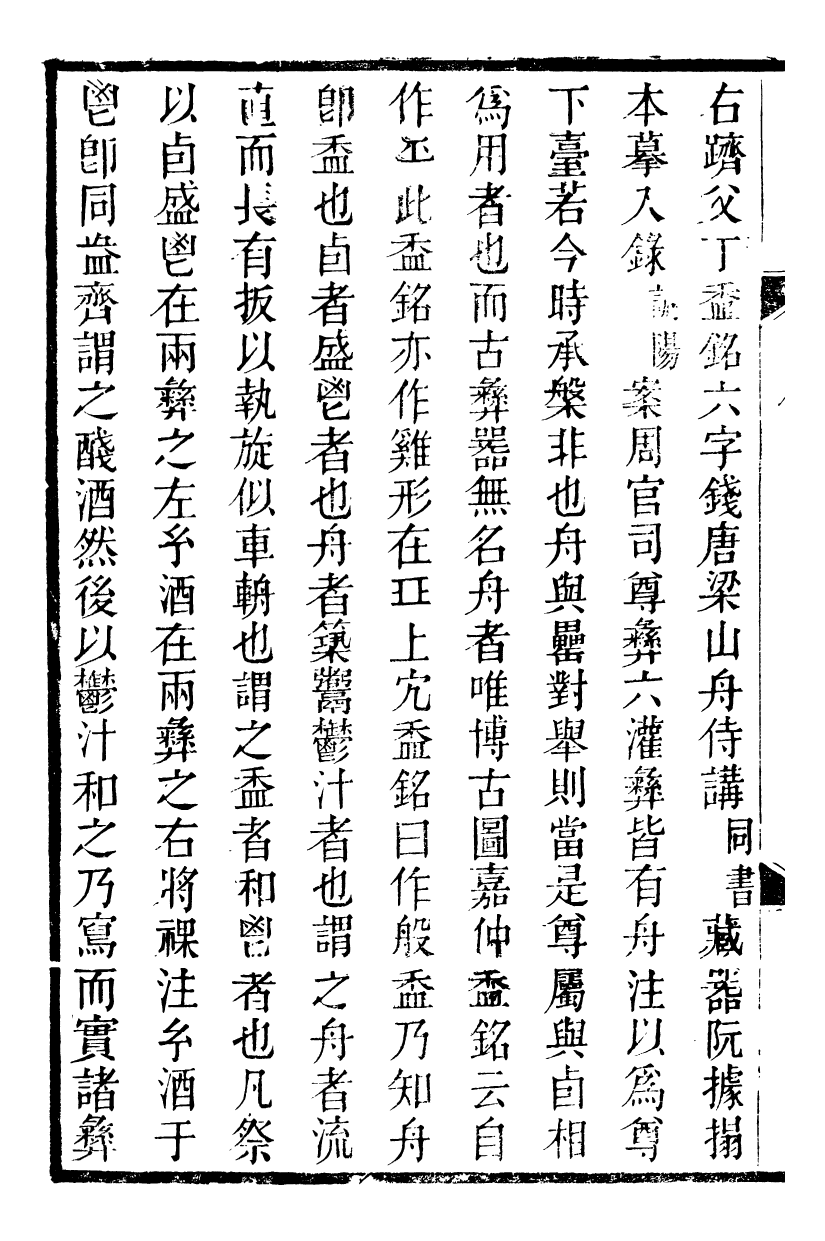 右躋父丁盉銘六字錢唐梁山舟侍講同書藏器阮據搨
本摹入錄陽案周官司尊彝六灌彝皆有舟注以爲尊
下臺若今時承槃非也舟與罍對舉則當是尊屬與卣相
爲用者也而古彝器無名舟者唯博古圖嘉仲盉銘云自
作此盉銘亦作雞形在上宂盉銘曰作般盉乃知舟
卽盉也卣者盛鬯者也舟者築鬻鬱汁者也謂之舟者流
直而長有扳以執旋似車輈也謂之盉者和鬯者也凡祭
以卣盛鬯在兩彝之左兮酒在兩彝之右將祼注兮酒于
鬯卽同盎齊謂之醆酒然後以鬱汁和之乃寫而實諸彝